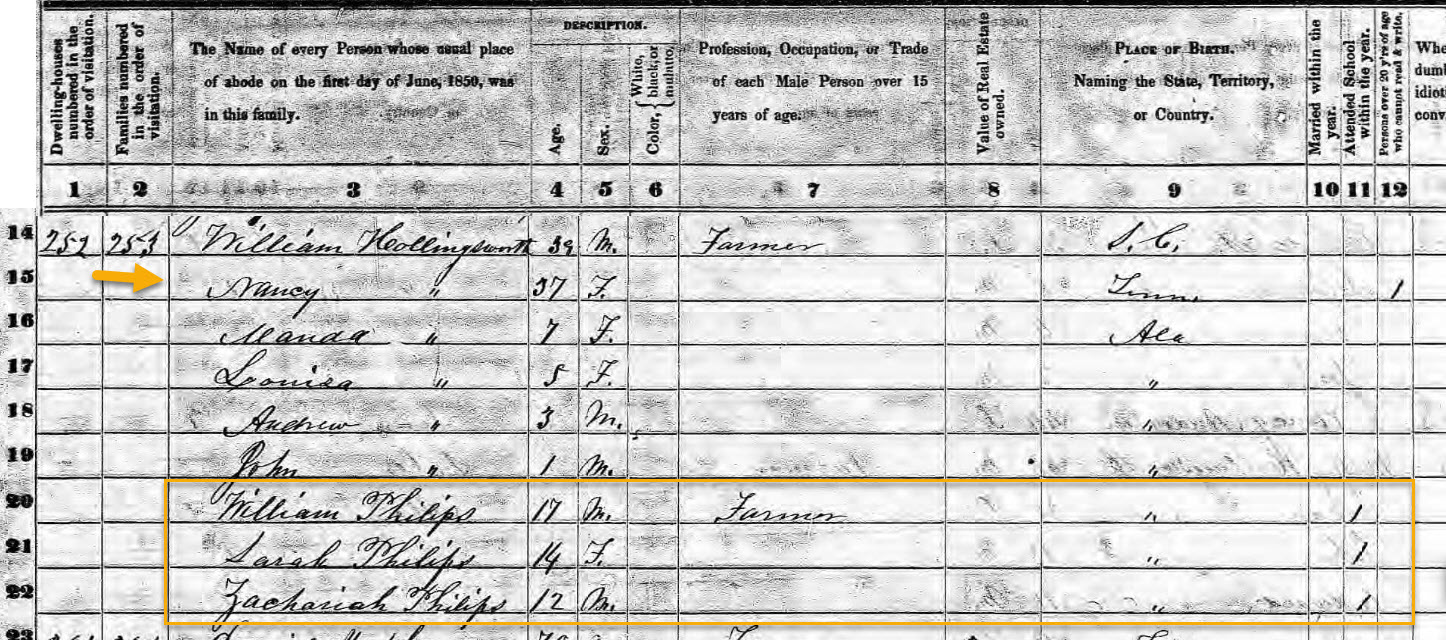 Dwelling-houses numbered in the order of visitation.
Families numbered in the order of visitation.
The Name of every Person whose usual place
of abode on the first day of June, 1850, was
in this family.
DESCRIPTION.
Age.
Sex.
Color, { White, black, or mulatto.
Profession, Occupation, or Trade
of each Male Person over 15
years of age.
Value of Real Estate owned.
PLACE OF BIRTH.
Naming the State, Territory,
or Country.
Married within the year.
Attended School within the year.
Persons over 20 y'rs of age who cannot read & write.
Whe
dumb
idioti
conv
1 2 3 4 5 6 7 8 9 10 11 12
14 252 253 William Hollingsworth 39 M. Farmer S. C.
15 Nancy " 37 F. Tenn. 1
16 Manda " 7 F. Ala
17 Louisa " 5 F. "
18 Andrew " 3 M. "
19 John " 1 M. "
20 William Philips 17 M. Farmer " 1
21 Sarah Philips 14 F. " 1
22 Zachariah Philips 12 M. " 1
23